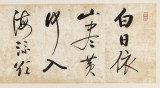 白日依
山尽黄
河入
海流欲